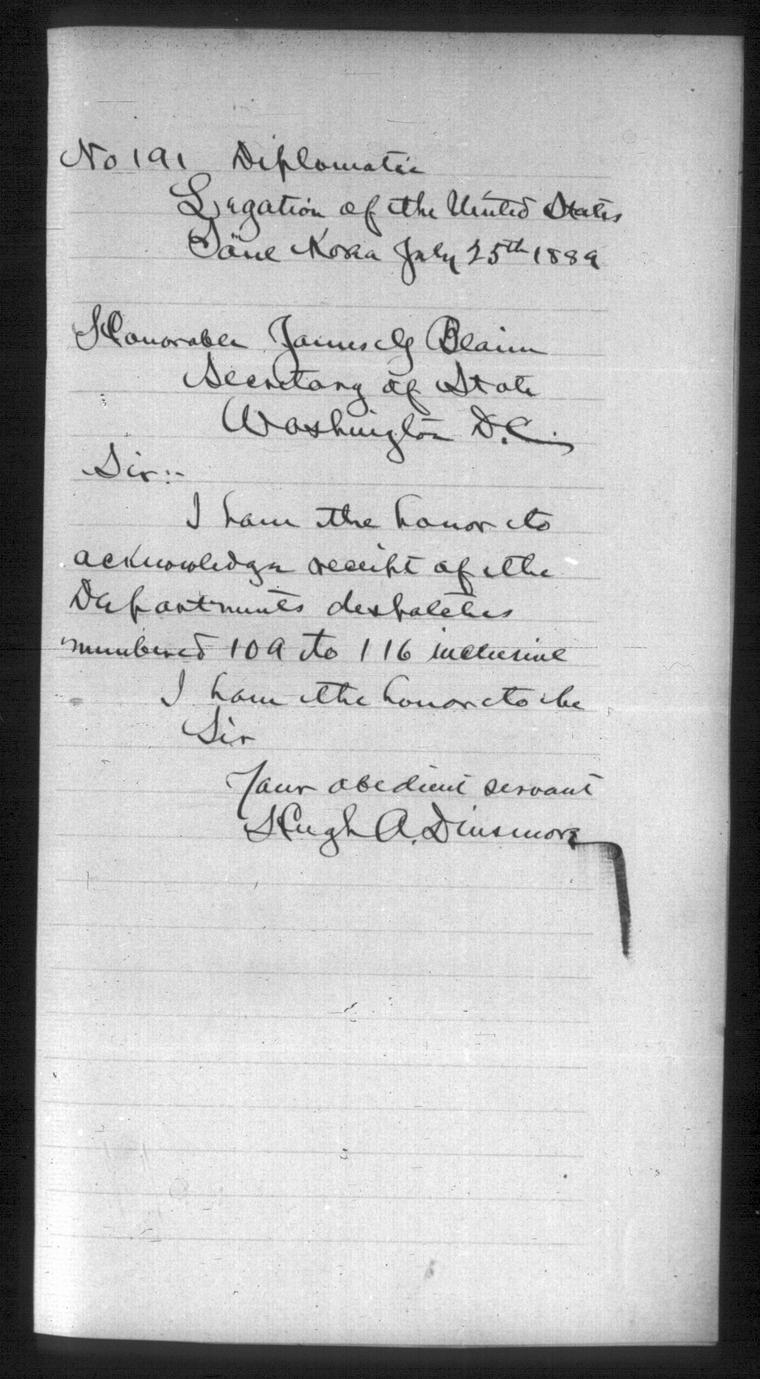 No 191 Diplomatic
Legation of the United States
Söul Korea July 25th 1889
Honorable James G Blaine
Secretary of State
Washington D.C.
Sir:-
I have the honor to
acknowledge receipt of the
Departments despatches
numbered 109 to 116 inclusive
I have the honor to be
Sir
Your obedient servant
Hugh A. Dinsmore